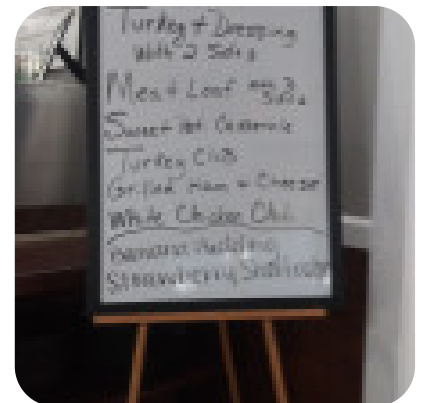 Turkey + Dressing
With 2 Sides
Meat Loaf
Sides
Sweet Pot Casserole
Turkey Club
Grilled Ham + Cheese
White Chicken Chili
Banana Pudding
Strawberry Shortcake